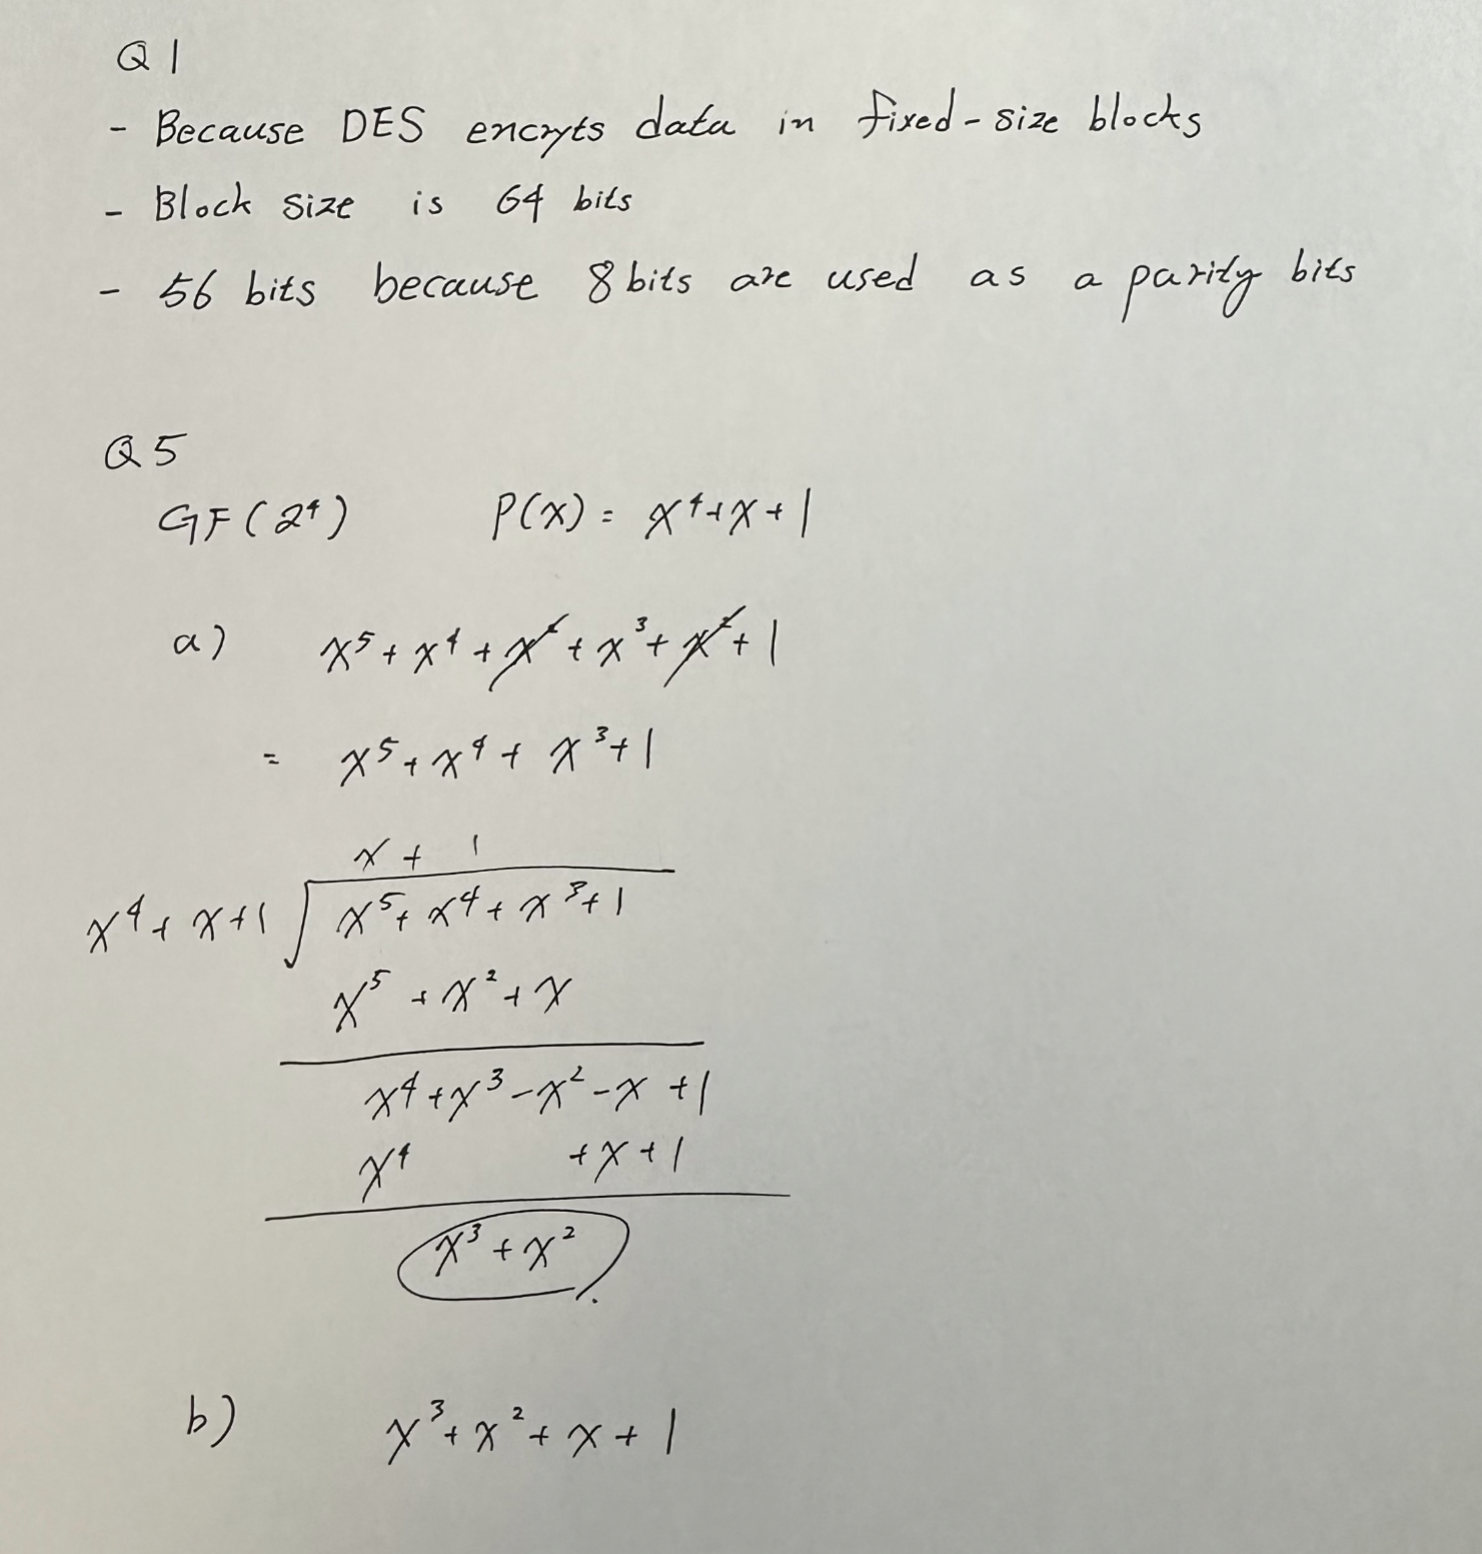 Q1
- Because DES encryts data in fixed-size blocks
- Block size is 64 bits
- 56 bits because 8 bits are used as a parity bits
Q5
GF(2⁴) P(x) = x⁴+x+1
a) x⁵+x⁴+x²+x³+x²+1
= x⁵+x⁴+x³+1
x + 1
x⁴+x+1 √ x⁵+x⁴+x³+1
x⁵+x²+x
x⁴+x³-x²-x+1
x⁴ +x+1
x³+x²
b) x³+x²+x+1